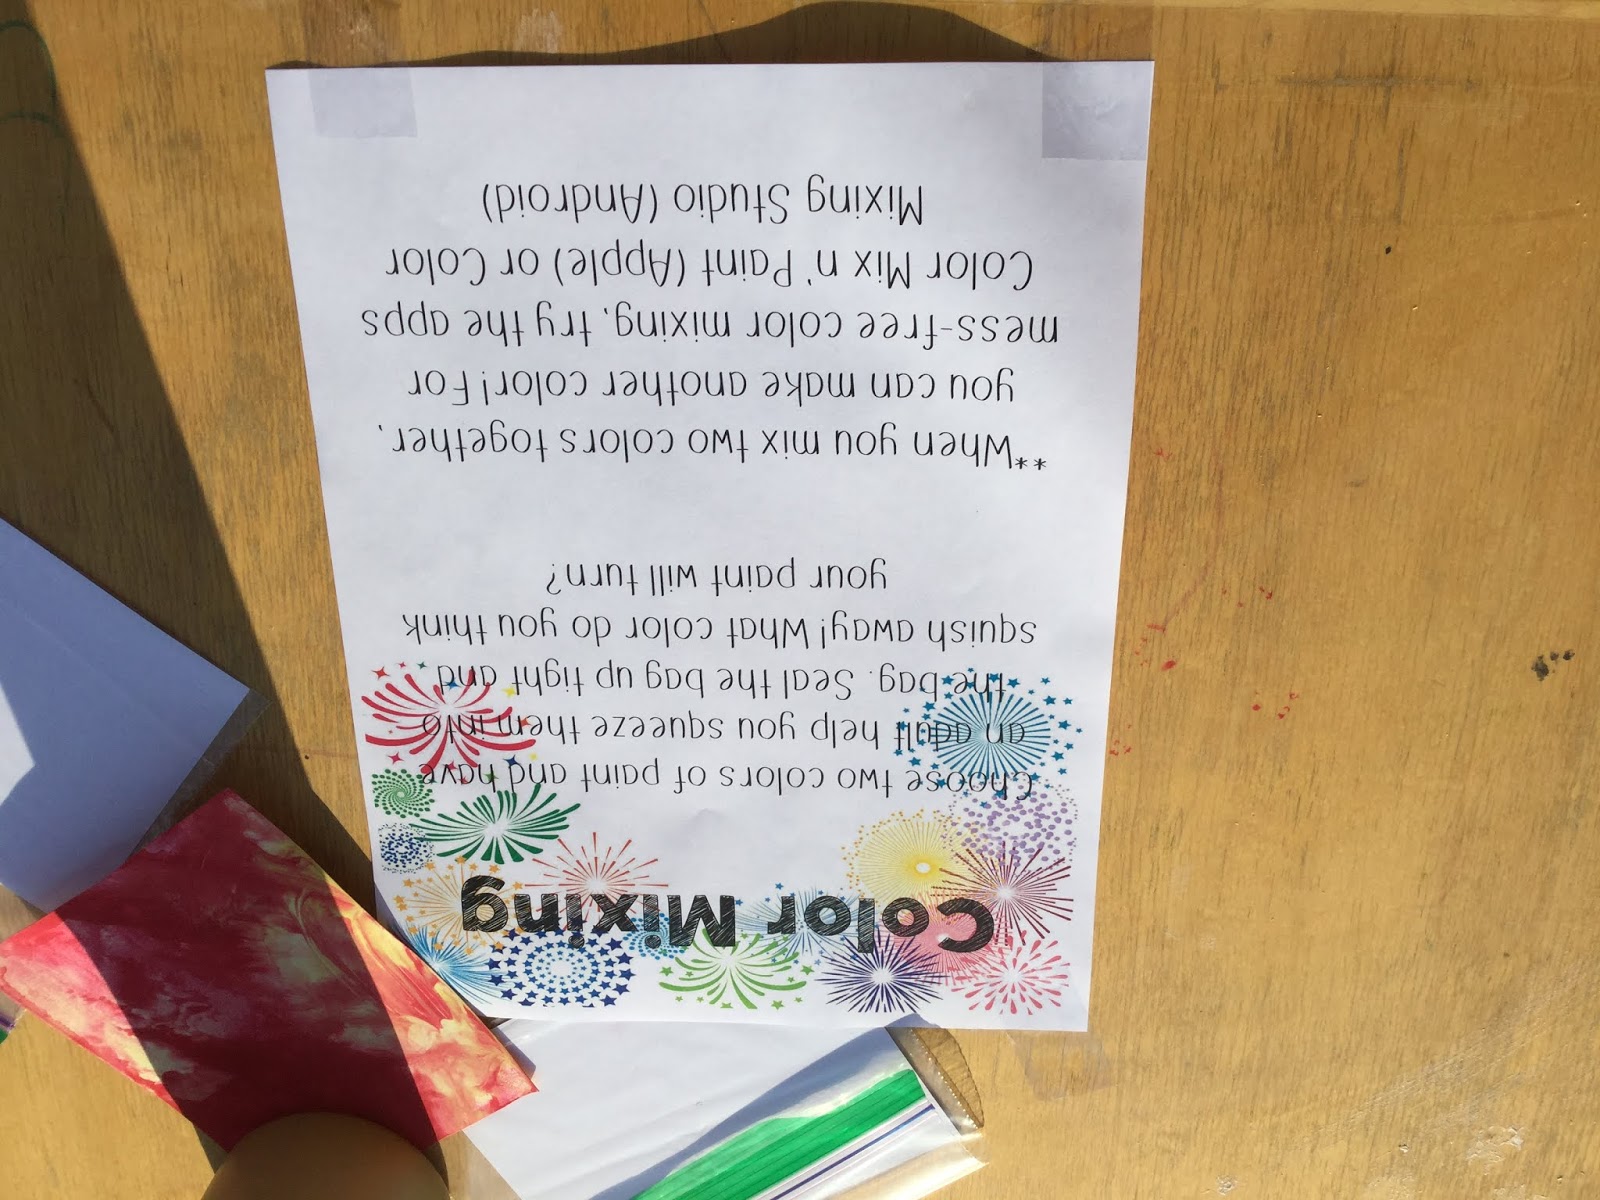 Color Mixing
Choose two colors of paint and have
an adult help you squeeze them into
the bag. Seal the bag up tight and
squish away! What color do you think
your paint will turn?
**When you mix two colors together,
you can make another color! For
mess-free color mixing, try the apps
Color Mix n' Paint (Apple) or Color
Mixing Studio (Android)